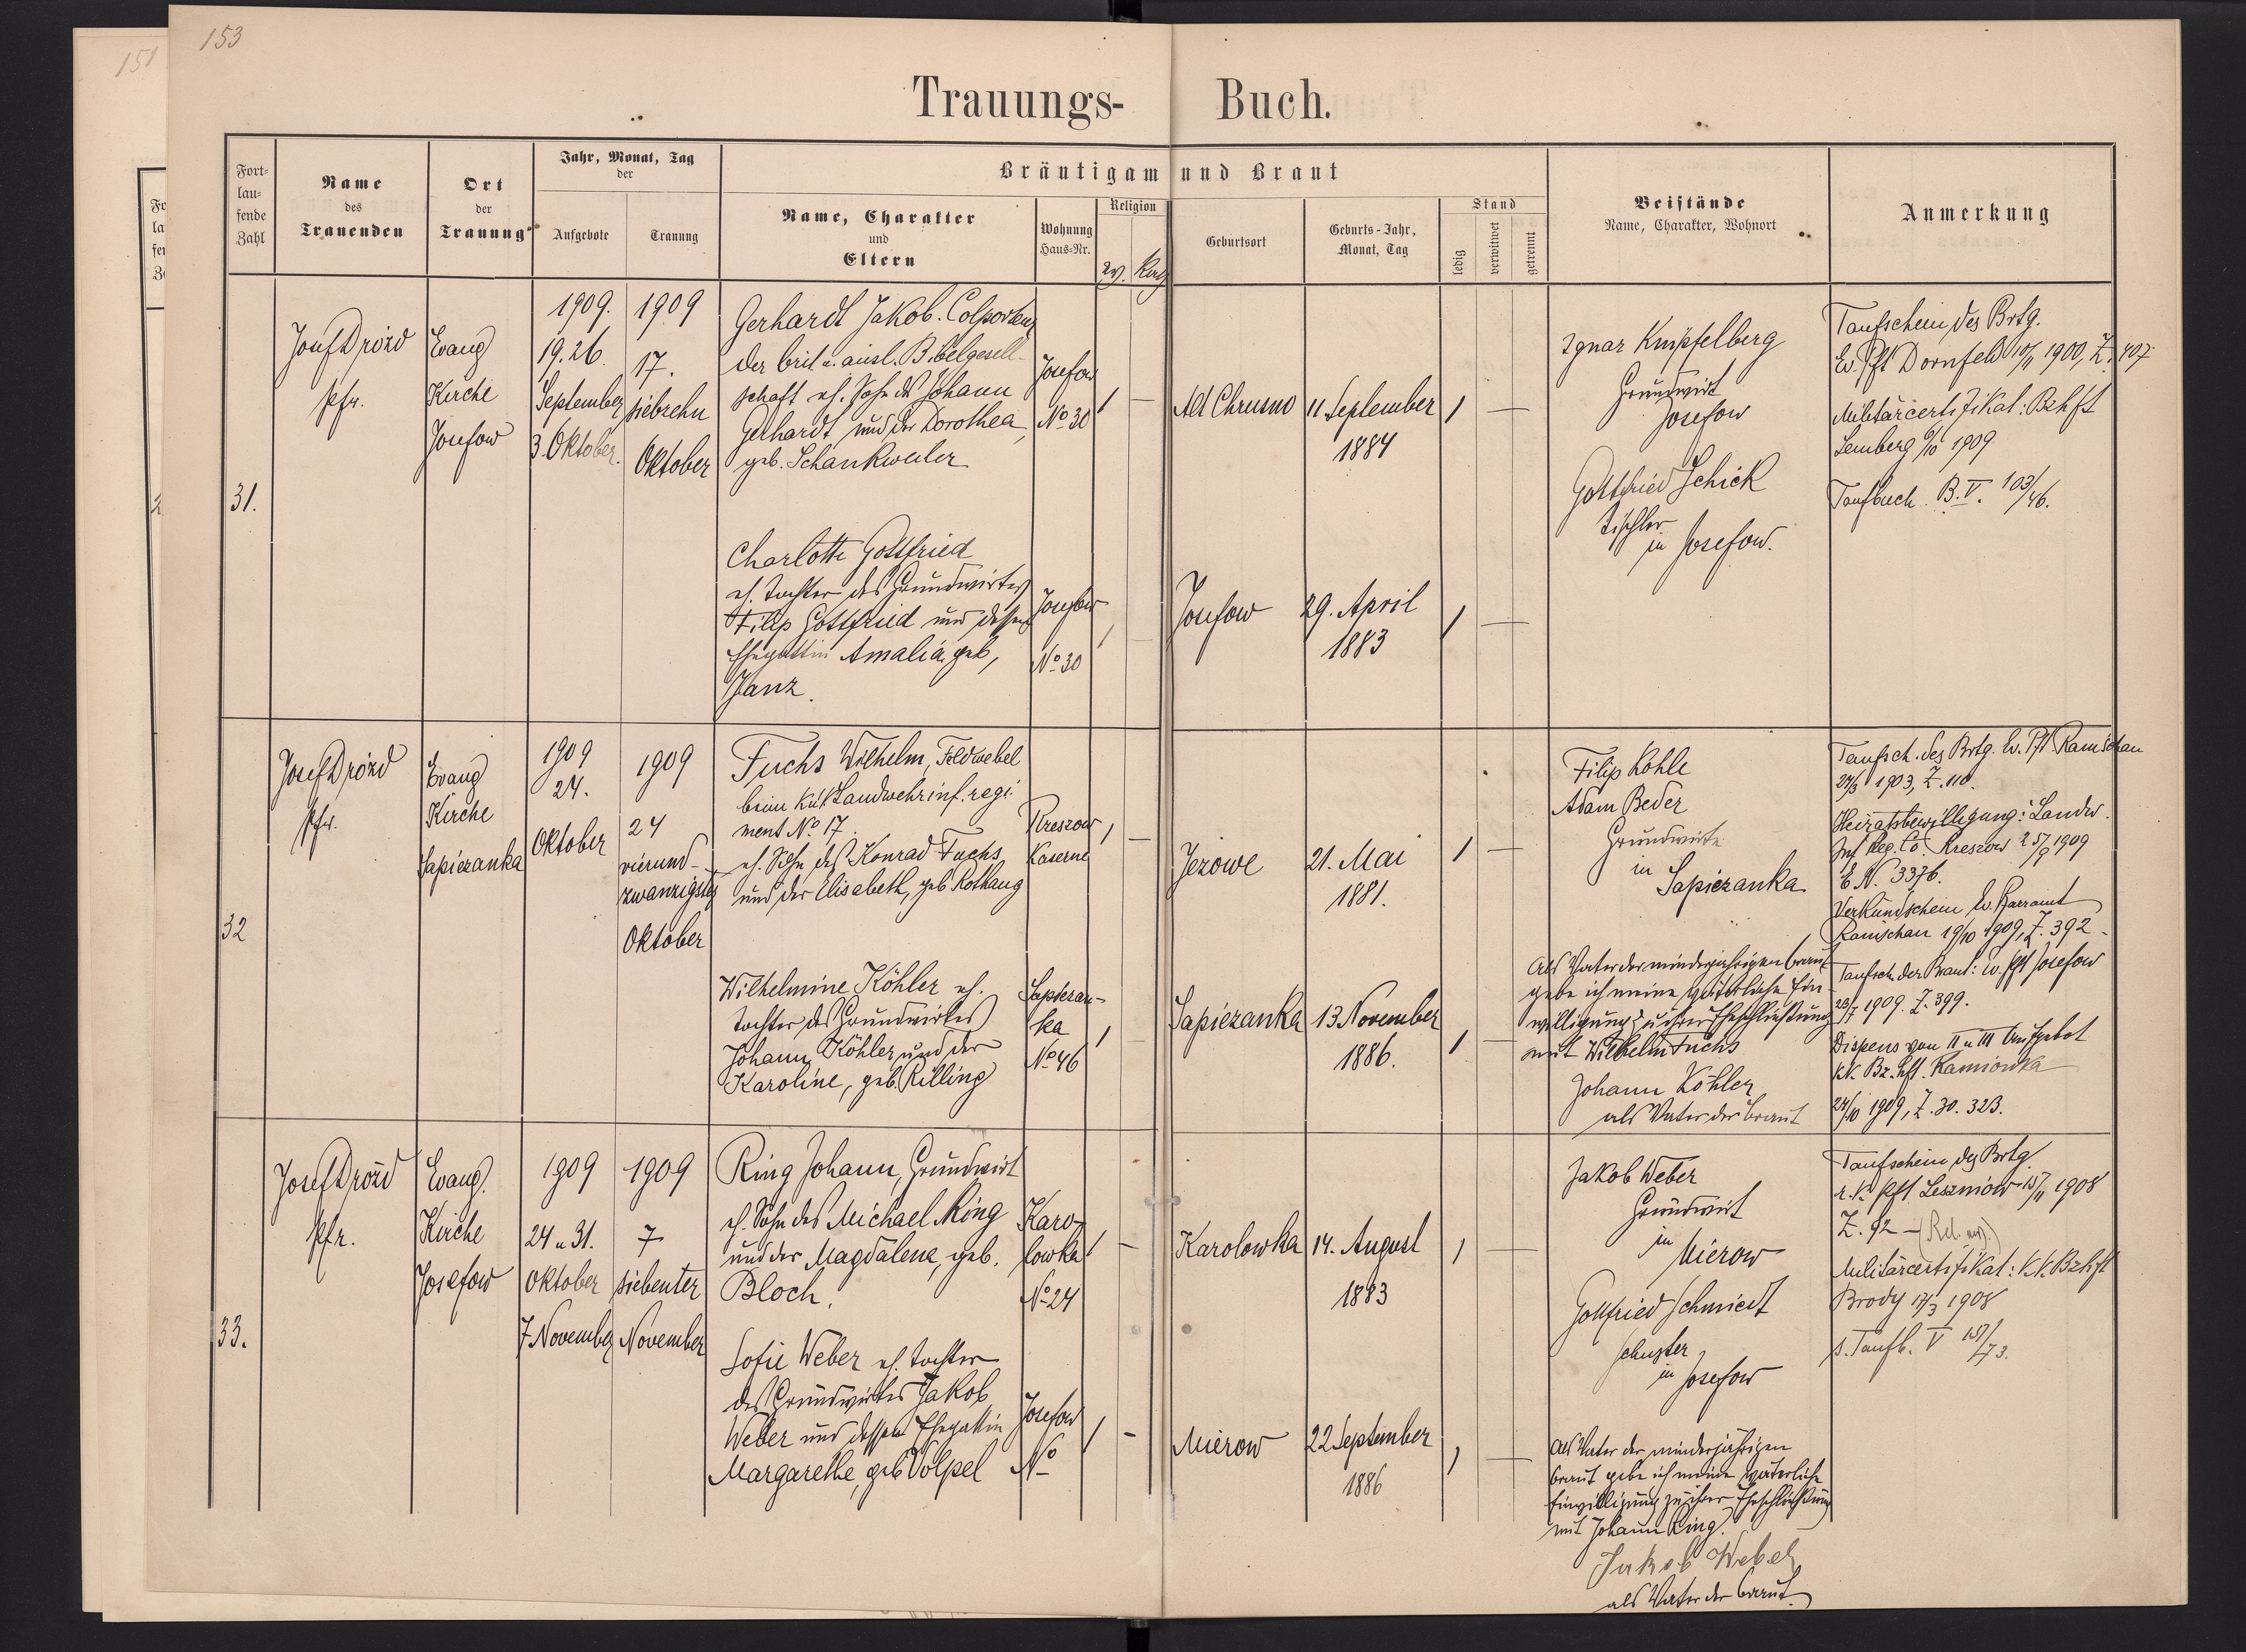 151
153
Trauungs-Buch.
Fort-
lau-
fende
Zahl
Name
des
Trauenden
Ort
der
Trauung
Jahr, Monat, Tag
der
Aufgebote
Trauung
Bräutigam und Braut
Name, Charakter
und
Eltern
Wohnung
Haus-Nr.
Religion
ev. Kath
Geburtsort
Geburts-Jahr,
Monat, Tag
Stand
ledig
verwitwet
getrennt
Beistände
Name, Charakter, Wohnort
Anmerkung
31.
Josef Drózd
Pfr.
Evang
Kirche
Josefow
1909.
19. 26.
September
3. Oktober.
1909
17.
siebzehn
Oktober
Gerhardt Jakob. Colporteur
der brit. u. ausl. Bibelgesell-
schaft eh. Sohn des Johann
Gerhardt und der Dorothea,
geb. Schankweiler
Josefow
No 30
Alt Chrusno
11 September
1884
Charlotte Gottfried
eh. Tochter des Grundwirtes
Filip Gottfried und dessen
Ehegattin Amalia geb,
Janz.
Josefow
No 30
Josefow
29. April
1883
Ignaz Kmpfelberg
Grundwirt
Josefow
Gottfried Schick
Tischler
in Josefow.
Taufschein des Brtg.
Ev. Pft Dornfeld 10/11 1900, Z. 407
Militärcertifikat: Bzhft
Lemberg 6/10 1909
Taufbuch B. V. 103/46.
32
Josef Drózd
Pfr.
Evang
Kirche
Sapiezanka
1909
24.
Oktober
1909
24
vierund-
zwanzigster
Oktober
Fuchs Wilhelm, Feldwebel
beim k.k. Landwehrinf. regi
ment No 17.
eh. Sohn des Konrad Fuchs
und der Elisabeth, geb. Rothaug
Rzeszow
Kaserne
Jezowe
21. Mai
1881.
Wilhelmine Köhler eh.
Tochter des Grundwirtes
Johann Köhler und der
Karoline, geb. Rilling
Sapiezan-
ka
No 46
Sapiezanka
13 November
1886.
Filip Köhle
Adam Beder
Grundwirte
in
Sapiezanka
Als Vater der minderjährigen Braut
gebe ich meine väterliche Ein-
willigung zu ihrer Eheschließung
mit Wilhelm Fuchs
Johann Köhler
als Vater der Braut
Taufsch. des Brtg. Ev. Pft Ranischau
27/3 1903, Z. 110.
Heiratsbewilligung: Landw.
Inf Reg. Co. Rzeszow 25/9 1909
E N. 3376.
Verkündschein Ev. Pfarramt
Ranischau 19/10 1909, Z. 392.
Taufsch. der Braut: Ev. Pft Josefow
23/7 1909. Z. 399.
Dispens von II u III Aufgebot
k.k. Bz. hft. Kamionka
24/10 1909, Z. 30. 323.
33.
Josef Drózd
Pfr.
Evang.
Kirche
Josefow
1909
24 u 31.
Oktober
7 November
1909
7
siebenter
November
Ring Johann, Grundwirt
eh. Sohn des Michael Ring
und der Magdalena, geb.
Bloch.
Karo-
lowka
No 24
Karolowka
14. August
1883
Sofie Weber eh. Tochter
des Grundwirtes Jakob
Weber und dessen Ehegattin
Margarethe, geb Volpel
Josefow
No
Mierow
22 September
1886
Jakob Weber
Grundwirt
in
Mierow
Gottfried Schmiedt
Schuster
in Josefow
Als Vater der minderjährigen
Braut gebe ich meine väterliche
Einwilligung zu ihrer Eheschließung
mit Johann Ring.
Jakob Weber
als Vater der Braut.
Taufschein des Brtg.
r. k. Pft Leszniow 15/11 1908
Z. 92 -
Militärcertifikat: k.k. Bzhft
Brody 17/3 1908
s. Taufb. V 157/73.